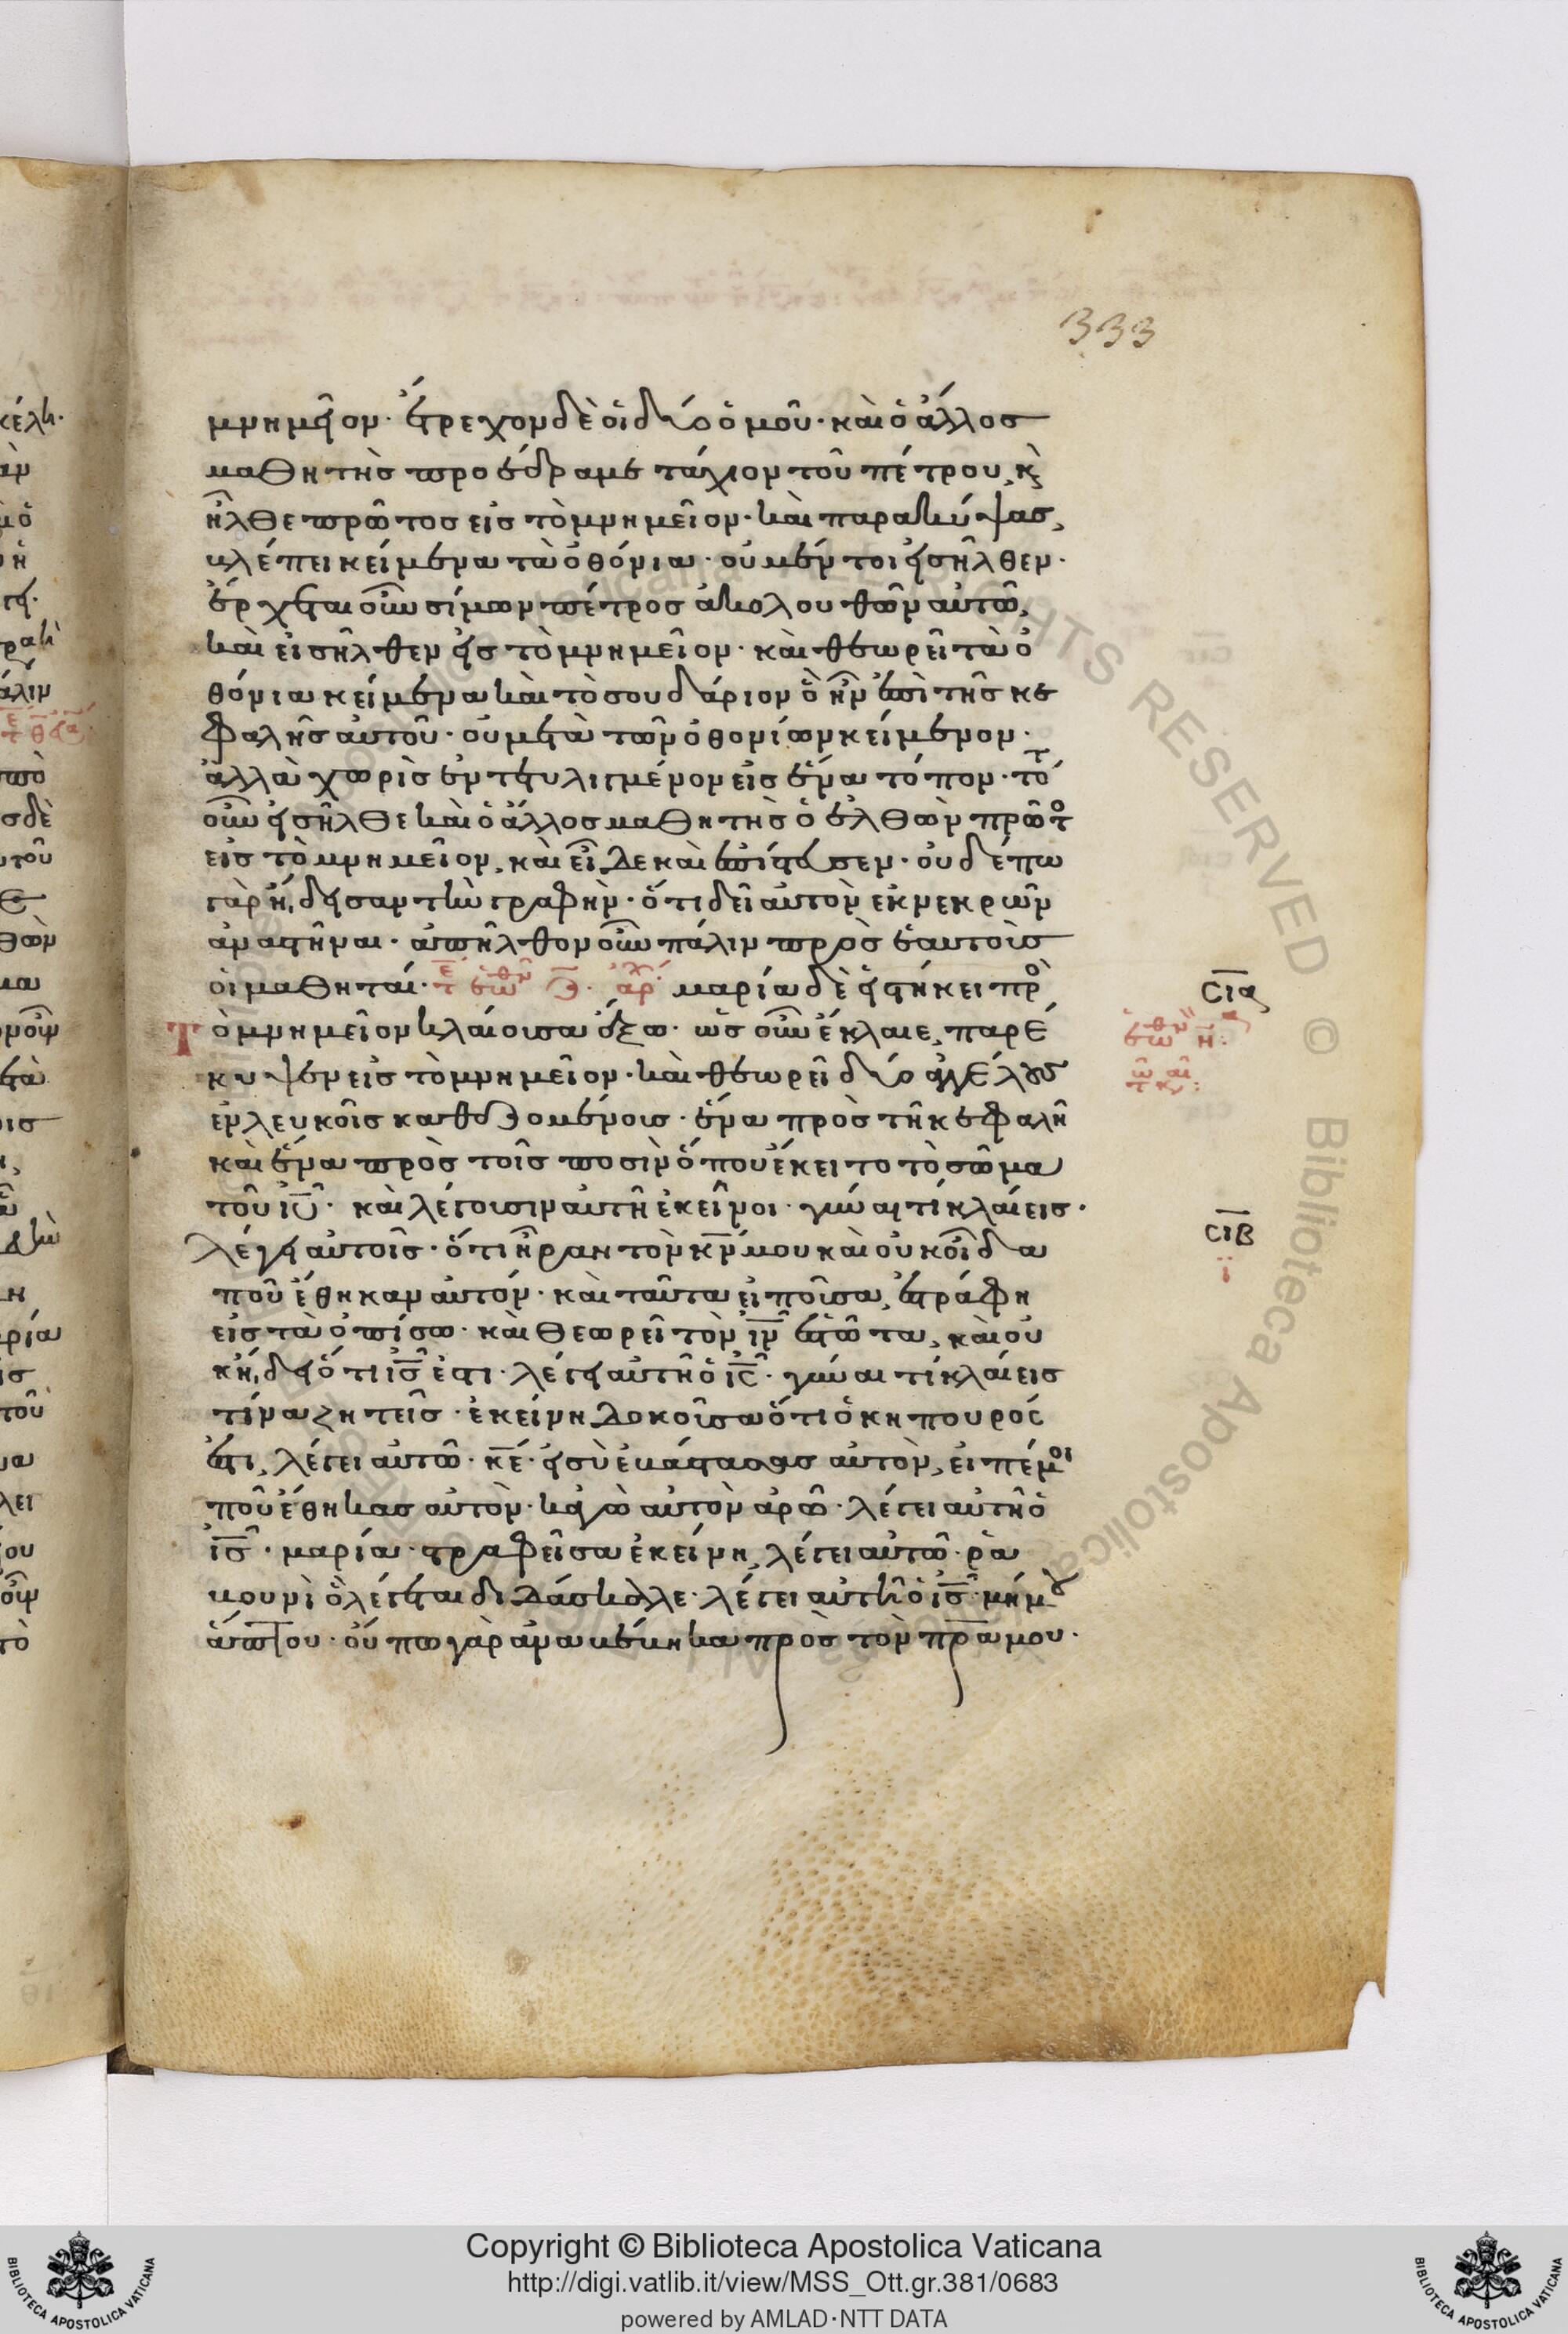 333
μνημεῖον· ἔτρεχον δὲ οἱ δύο ὁμοῦ· καὶ ὁ ἄλλος
μαθητὴς προέδραμε τάχιον τοῦ πέτρου, κ̀
ἦλθε πρῶτος εἰς τὸ μνημεῖον· καὶ παρακύψας,
βλέπει κείμενα τὰ ὀθόνια· οὐ μέν τοι εἰσῆλθεν·
ἔρχεται οὖν σίμων πέτρος ἀκολουθῶν αὐτῶ,
καὶ εἰσῆλθεν εἰς τὸ μνημεῖον· καὶ θεωρεῖ τὰ ὀ
θόνια κείμενα καὶ τὸ σουδάριον ὃ ἦν ἐπὶ τῆς κε
φαλῆς αὐτοῦ· οὐ μετὰ τῶν ὀθονίων κείμενον·
ἀλλὰ χωρὶς ἐντετυλιγμένον εἰς ἕνα τόπον· τότ
οὖν εἰσῆλθε καὶ ὁ ἄλλος μαθητὴς ὁ ἐλθὼν πρῶτο
εἰς τὸ μνημεῖον, καὶ εἶδε καὶ ἐπίστευσεν· οὐδέπω
γὰρ ἤιδεισαν τὴν γραφὴν· ὅτι δεῖ αὐτὸν ἐκ νεκρῶν
ἀναστῆναι· ἀπῆλθον οὖν πάλιν πρὸς ἑαυτοὺς
οἱ μαθηταί· μαρία δὲ εἱστήκει πρὸ
Τὸ μνημεῖον κλαίουσα ἔξω· ὡς οὖν ἔκλαιε, παρέ
κυψεν εἰς τὸ μνημεῖον· καὶ θεωρεῖ δύο ἀγγέλους
ἐν λευκοῖς καθεζομένοις· ἕνα πρὸς τῆ κεφαλῆ
καὶ ἕνα πρὸς τοῖς ποσὶν ὅπου ἔκειτο τὸ σῶμα
τοῦ ἰυ̅· καὶ λέγουσιν αὐτῆ ἐκεῖνοι· γύναι τί κλαίεις·
λέγει αὐτοῖς· ὅτι ἦραν τὸν κ̅ν̅ μου καὶ οὐκ οἶδα
ποῦ ἔθηκαν αὐτόν· καὶ ταῦτα εἰποῦσα, ἐστράφη
εἰς τὰ ὀπίσω· καὶ θεωρεῖ τὸν ἰν̅ ἑστῶτα, καὶ οὐ
κ ἤιδει ὅτι ἰς̅ ἐστι· λέγει αὐτῆ ὁ ἰς̅· γύναι τί κλαίεις
τίνα ζητεῖς· ἐκείνη δοκοῦσα ὅτι ὁ κηπουρός
ἐστι, λέγει αὐτῶ· κ̅ε̅· εἰ σὺ ἐβάστασας αὐτὸν, εἰπέ μοι
ποῦ ἔθηκας αὐτὸν· κἀγὼ αὐτὸν ἀρῶ· λέγει αὐτῆ ὁ
ἰς̅· μαρία· στραφεῖσα ἐκείνη, λέγει αὐτῶ· ρα
βουνὶ ὃ λέγεται διδάσκαλε· λέγει αὐτῆ ὁ ἰς̅· μή μου
ἅπτου· οὔπω γὰρ ἀναβέβηκα πρὸς τὸν πρ̅α μου·
CΙΑ
CΙΒ
RIGHTS RESERVED © Biblioteca Apostolica
Copyright © Biblioteca Apostolica Vaticana
http://digi.vatlib.it/view/MSS_Ott.gr.381/0683
powered by AMLAD·NTT DATA
BIBLIOTECA APOSTOLICA VATICANA
BIBLIOTECA APOSTOLICA VATICANA